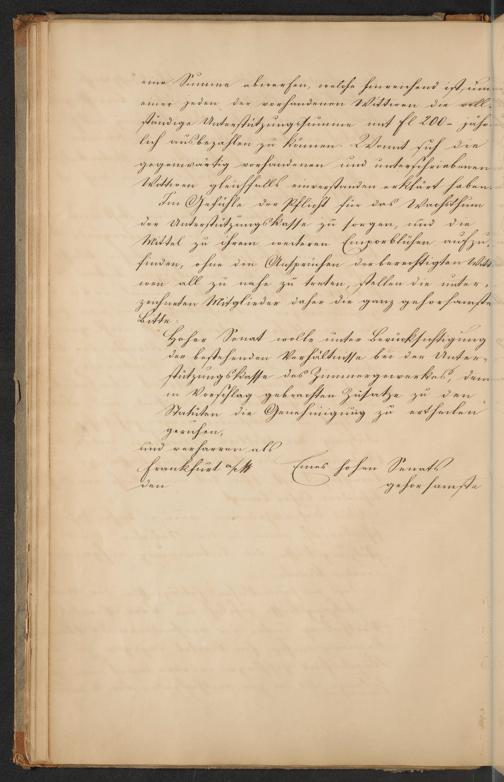 eine Summe abwerfen, welche hinreichend ist, um
einer jeden der vorhandenen Wittwen die voll-
ständige Unterstützungssumme mit fl 200 – jähr-
lich ausbezahlen zu können. Womit sich die
gegenwärtig vorhandenen und unterschriebenen
Wittwen gleichfalls einverstanden erklärt haben.
Im Gefühle der Pflicht für das Wachsthum
der Unterstützungskasse zu sorgen, und die
Mittel zu ihrem weiteren Emporblühen aufzu-
finden, ohne den Ansprüchen der berechtigten Witt-
wen all zu nahe zu treten, stellen die unter-
zeichneten Mitglieder daher die ganz gehorsamste
Bitte:
Hoher Senat wolle unter Berücksichtigung
der bestehenden Verhältnisse bei der Unter-
stützungskasse des Zimmergewerkes, dem
in Vorschlag gebrachten Zusatze zu den
Statuten die Genehmigung zu ertheilen
geruhen,
und verharren als
Frankfurt a/M Eines hohen Senats
den gehorsamste